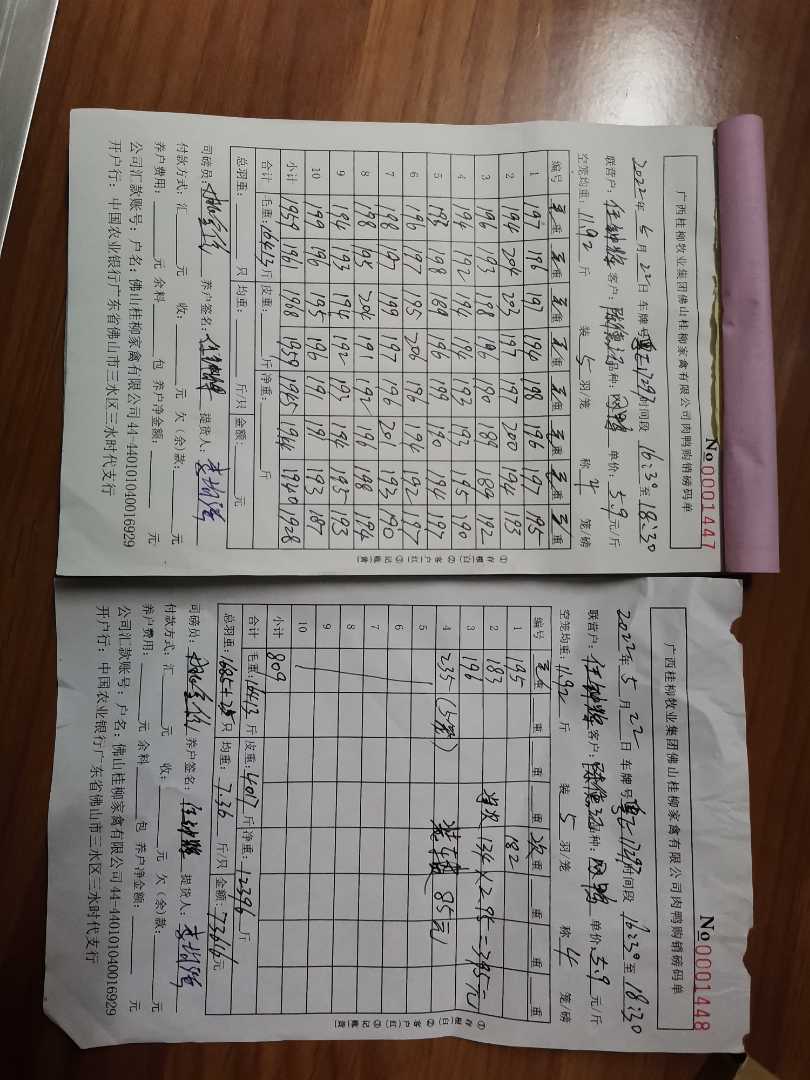 广西桂柳牧业集团佛山桂柳家禽有限公司肉鸭购销磅码单
No 0001447
2022年 5 月 22 日 车牌号 粤E17293 时间段 16:30 至 18:30
联营户: 任钟辉 客户: 品种: 单价: 5.9 元/斤
空笼均重: 11.92 斤 装 5 羽/笼 称 4 笼/磅
编号 毛重 毛重 毛重 毛重 毛重 毛重 毛重 毛重
1 197 196 197 194 198 196 197 195
2 194 204 203 197 197 200 194 193
3 196 193 188 196 190 189 189 192
4 194 192 194 194 193 193 195 190
5 193 198 189 196 189 190 194 197
6 196 197 195 206 196 194 192 197
7 198 197 199 197 196 201 193 190
8 198 195 204 191 192 196 198 194
9 194 193 194 192 193 194 195 193
10 199 196 195 196 191 191 193 187
小计 1959 1961 1968 1959 1945 1944 1940 1928
合计 毛重: 16413 斤 皮重: 斤 净重: 斤
总羽重: 只 均重: 斤/只 金额: 元
司磅员: 养户签名: 任钟辉 提货人:
付款方式: 汇 元 收: 元 欠(余)款: 元
养户费用: 元 余料 包 养户净金额: 元
公司汇款账号: 户名: 佛山桂柳家禽有限公司 44-440101040016929
开户行: 中国农业银行广东省佛山市三水区三水时代支行
①存根(白) ②客户(红) ③记账(黄)
广西桂柳牧业集团佛山桂柳家禽有限公司肉鸭购销磅码单
No 0001448
2022年 5 月 22 日 车牌号 粤E17293 时间段 16:30 至 18:30
联营户: 任钟辉 客户: 品种: 单价: 5.9 元/斤
空笼均重: 11.92 斤 装 5 羽/笼 称 4 笼/磅
编号 毛重 重 重 重 次重 重 重 重
1 195 182
2 183 134×2.95=395元
3 196
4 235 (5笼) 装车费 85元
5
6
7
8
9
10
小计 809
合计 毛重: 16413 斤 皮重: 4017 斤 净重: 12396 斤
总羽重: 1685+25 只 均重: 7.36 斤/只 金额: 73616 元
司磅员: 养户签名: 任钟辉 提货人:
付款方式: 汇 元 收: 元 欠(余)款: 元
养户费用: 元 余料 包 养户净金额: 元
公司汇款账号: 户名: 佛山桂柳家禽有限公司 44-440101040016929
开户行: 中国农业银行广东省佛山市三水区三水时代支行
①存根(白) ②客户(红) ③记账(黄)